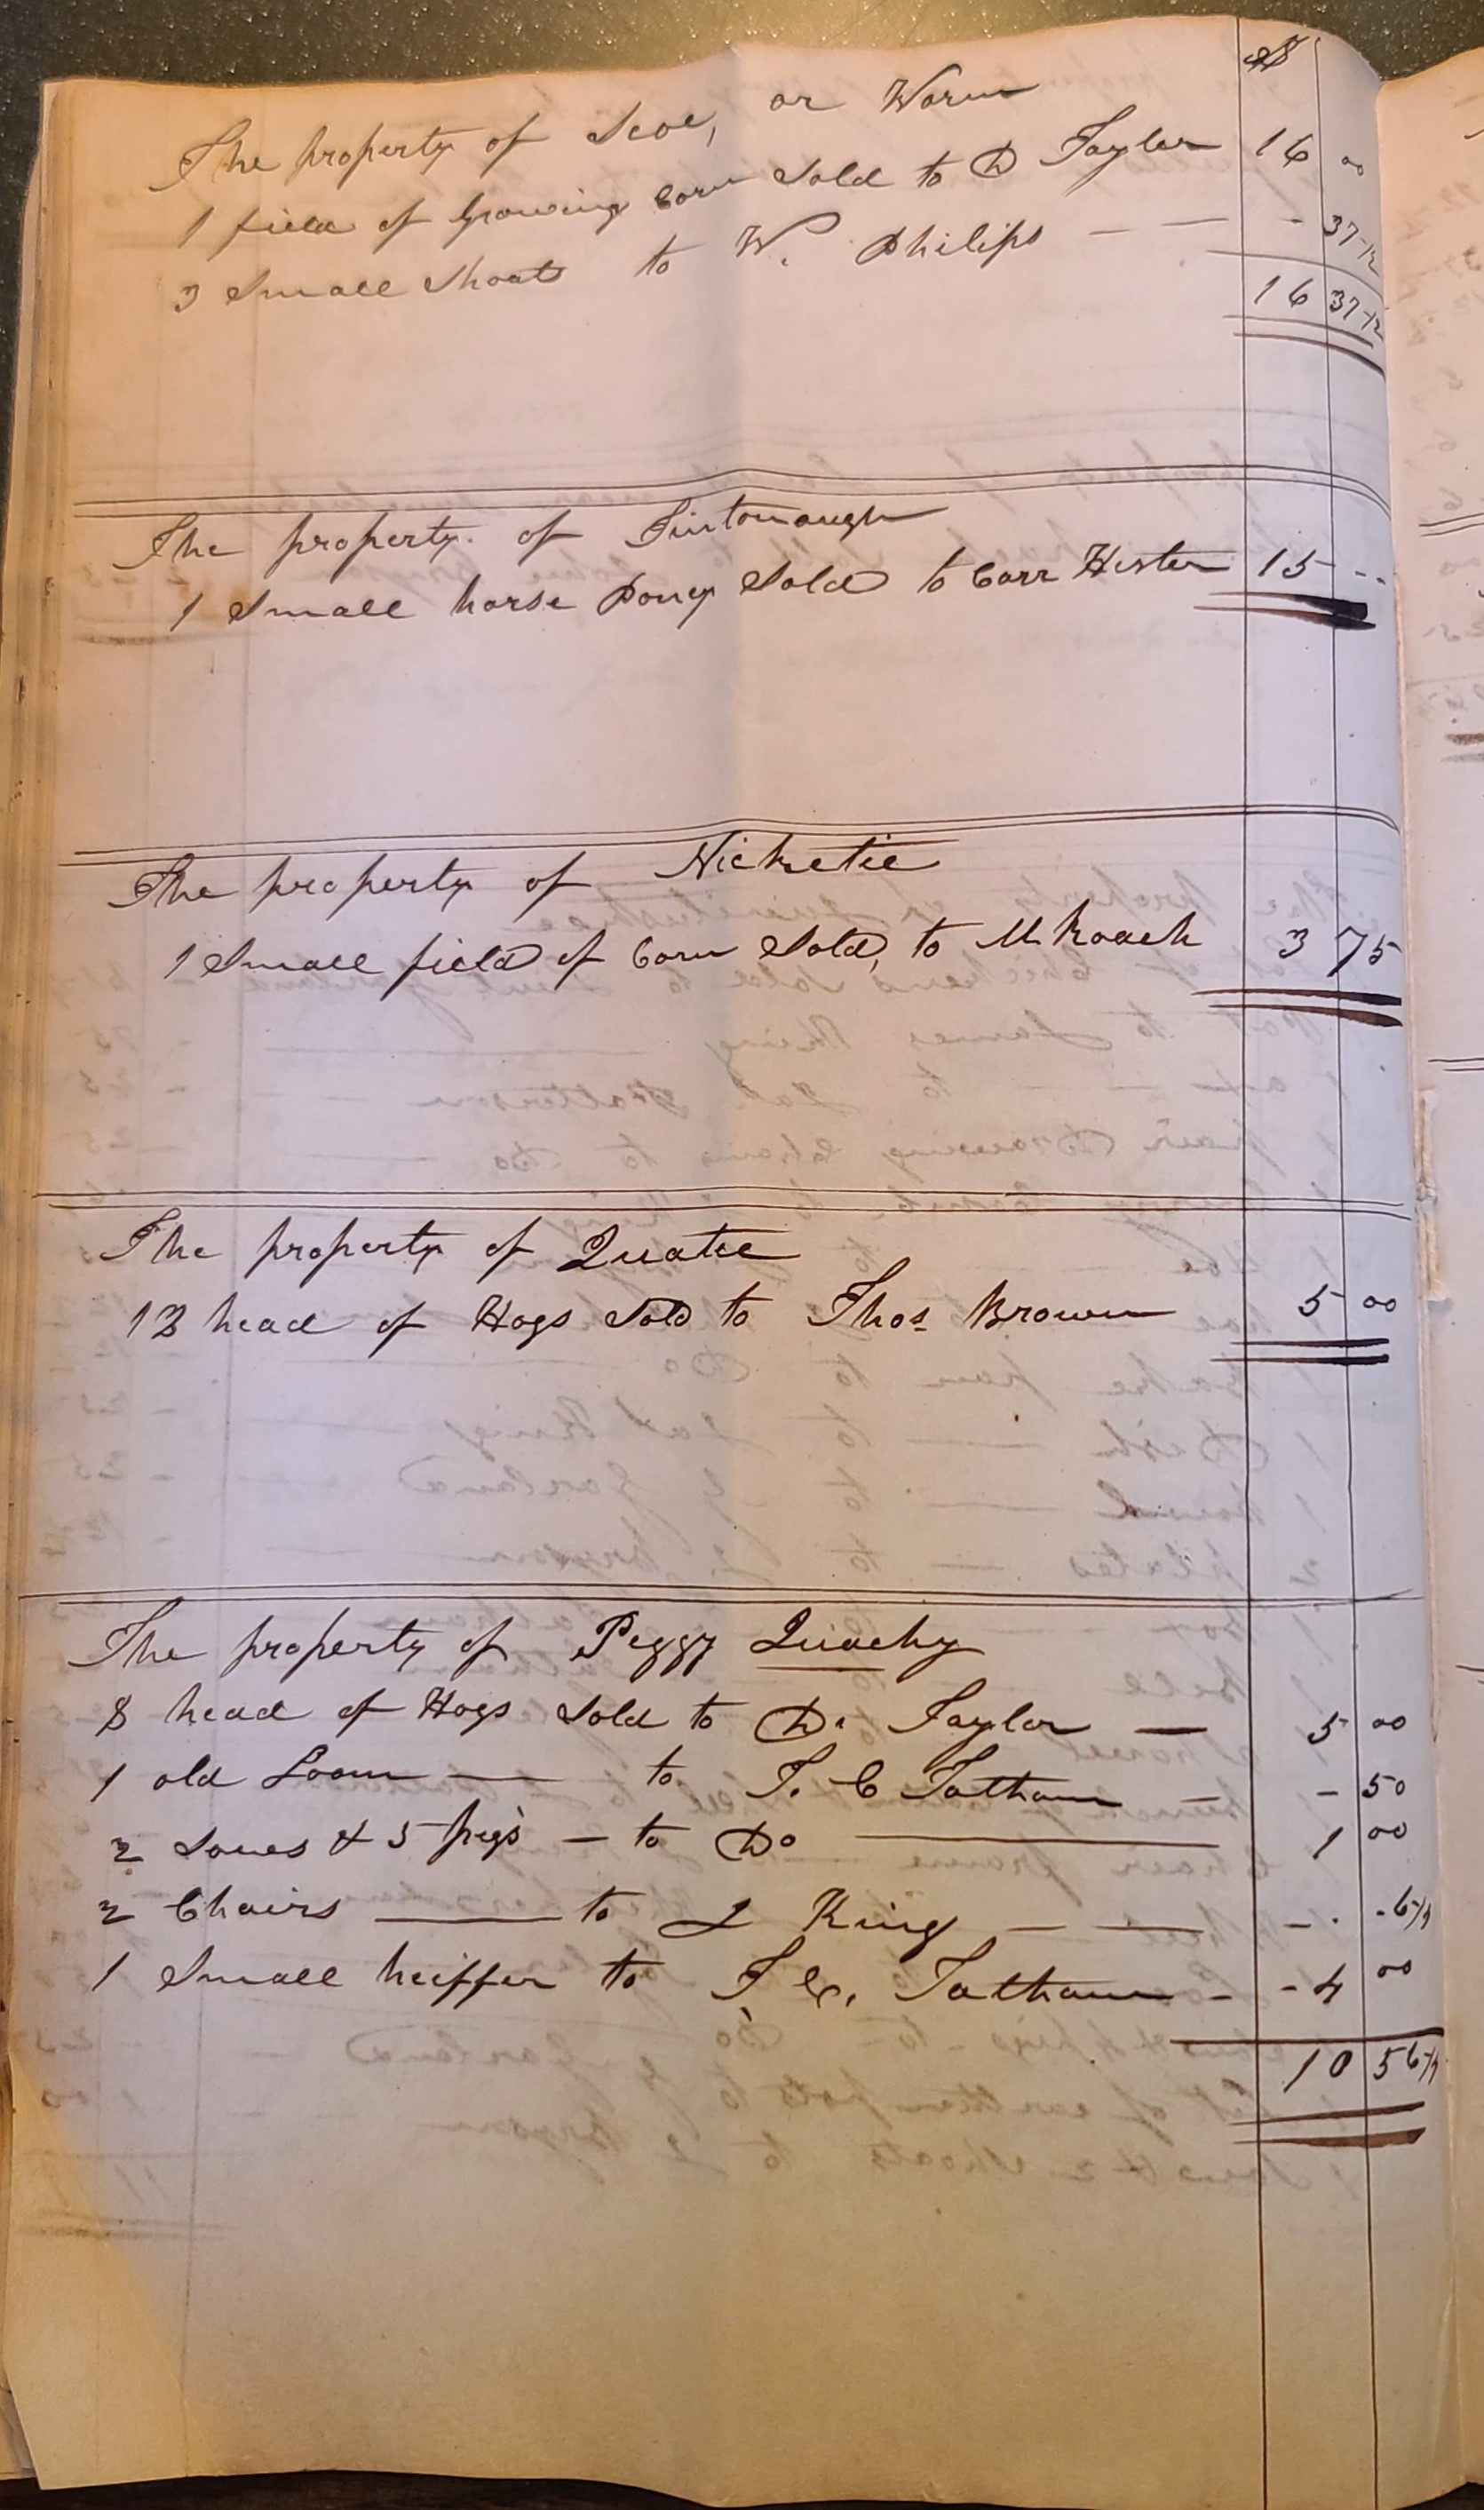 $
The property of Scoe, or Worm
1 field of Growing Corn Sold to D Taylor 16 00
3 Small Shoats to W. Philips - - - 37 1/2
16 37 1/2
The property of
1 Small horse Poney Sold to Carr Hester 15 --
The property of Nicketie
1 Small field of Corn Sold, to M Roach 3 75
The property of Quatee
13 head of Hogs Sold to Thos Brown 5 00
The property of Peggy Quachy
8 head of Hogs Sold to D. Taylor — 5 00
1 old Loom — to T. C Tatham - 50
2 Sows & 5 pigs — to Do — 1 00
2 Chairs — to J King — — - . - 6 1/4
1 Small heiffer to T C. Tatham - - 4 00
10 56 1/4